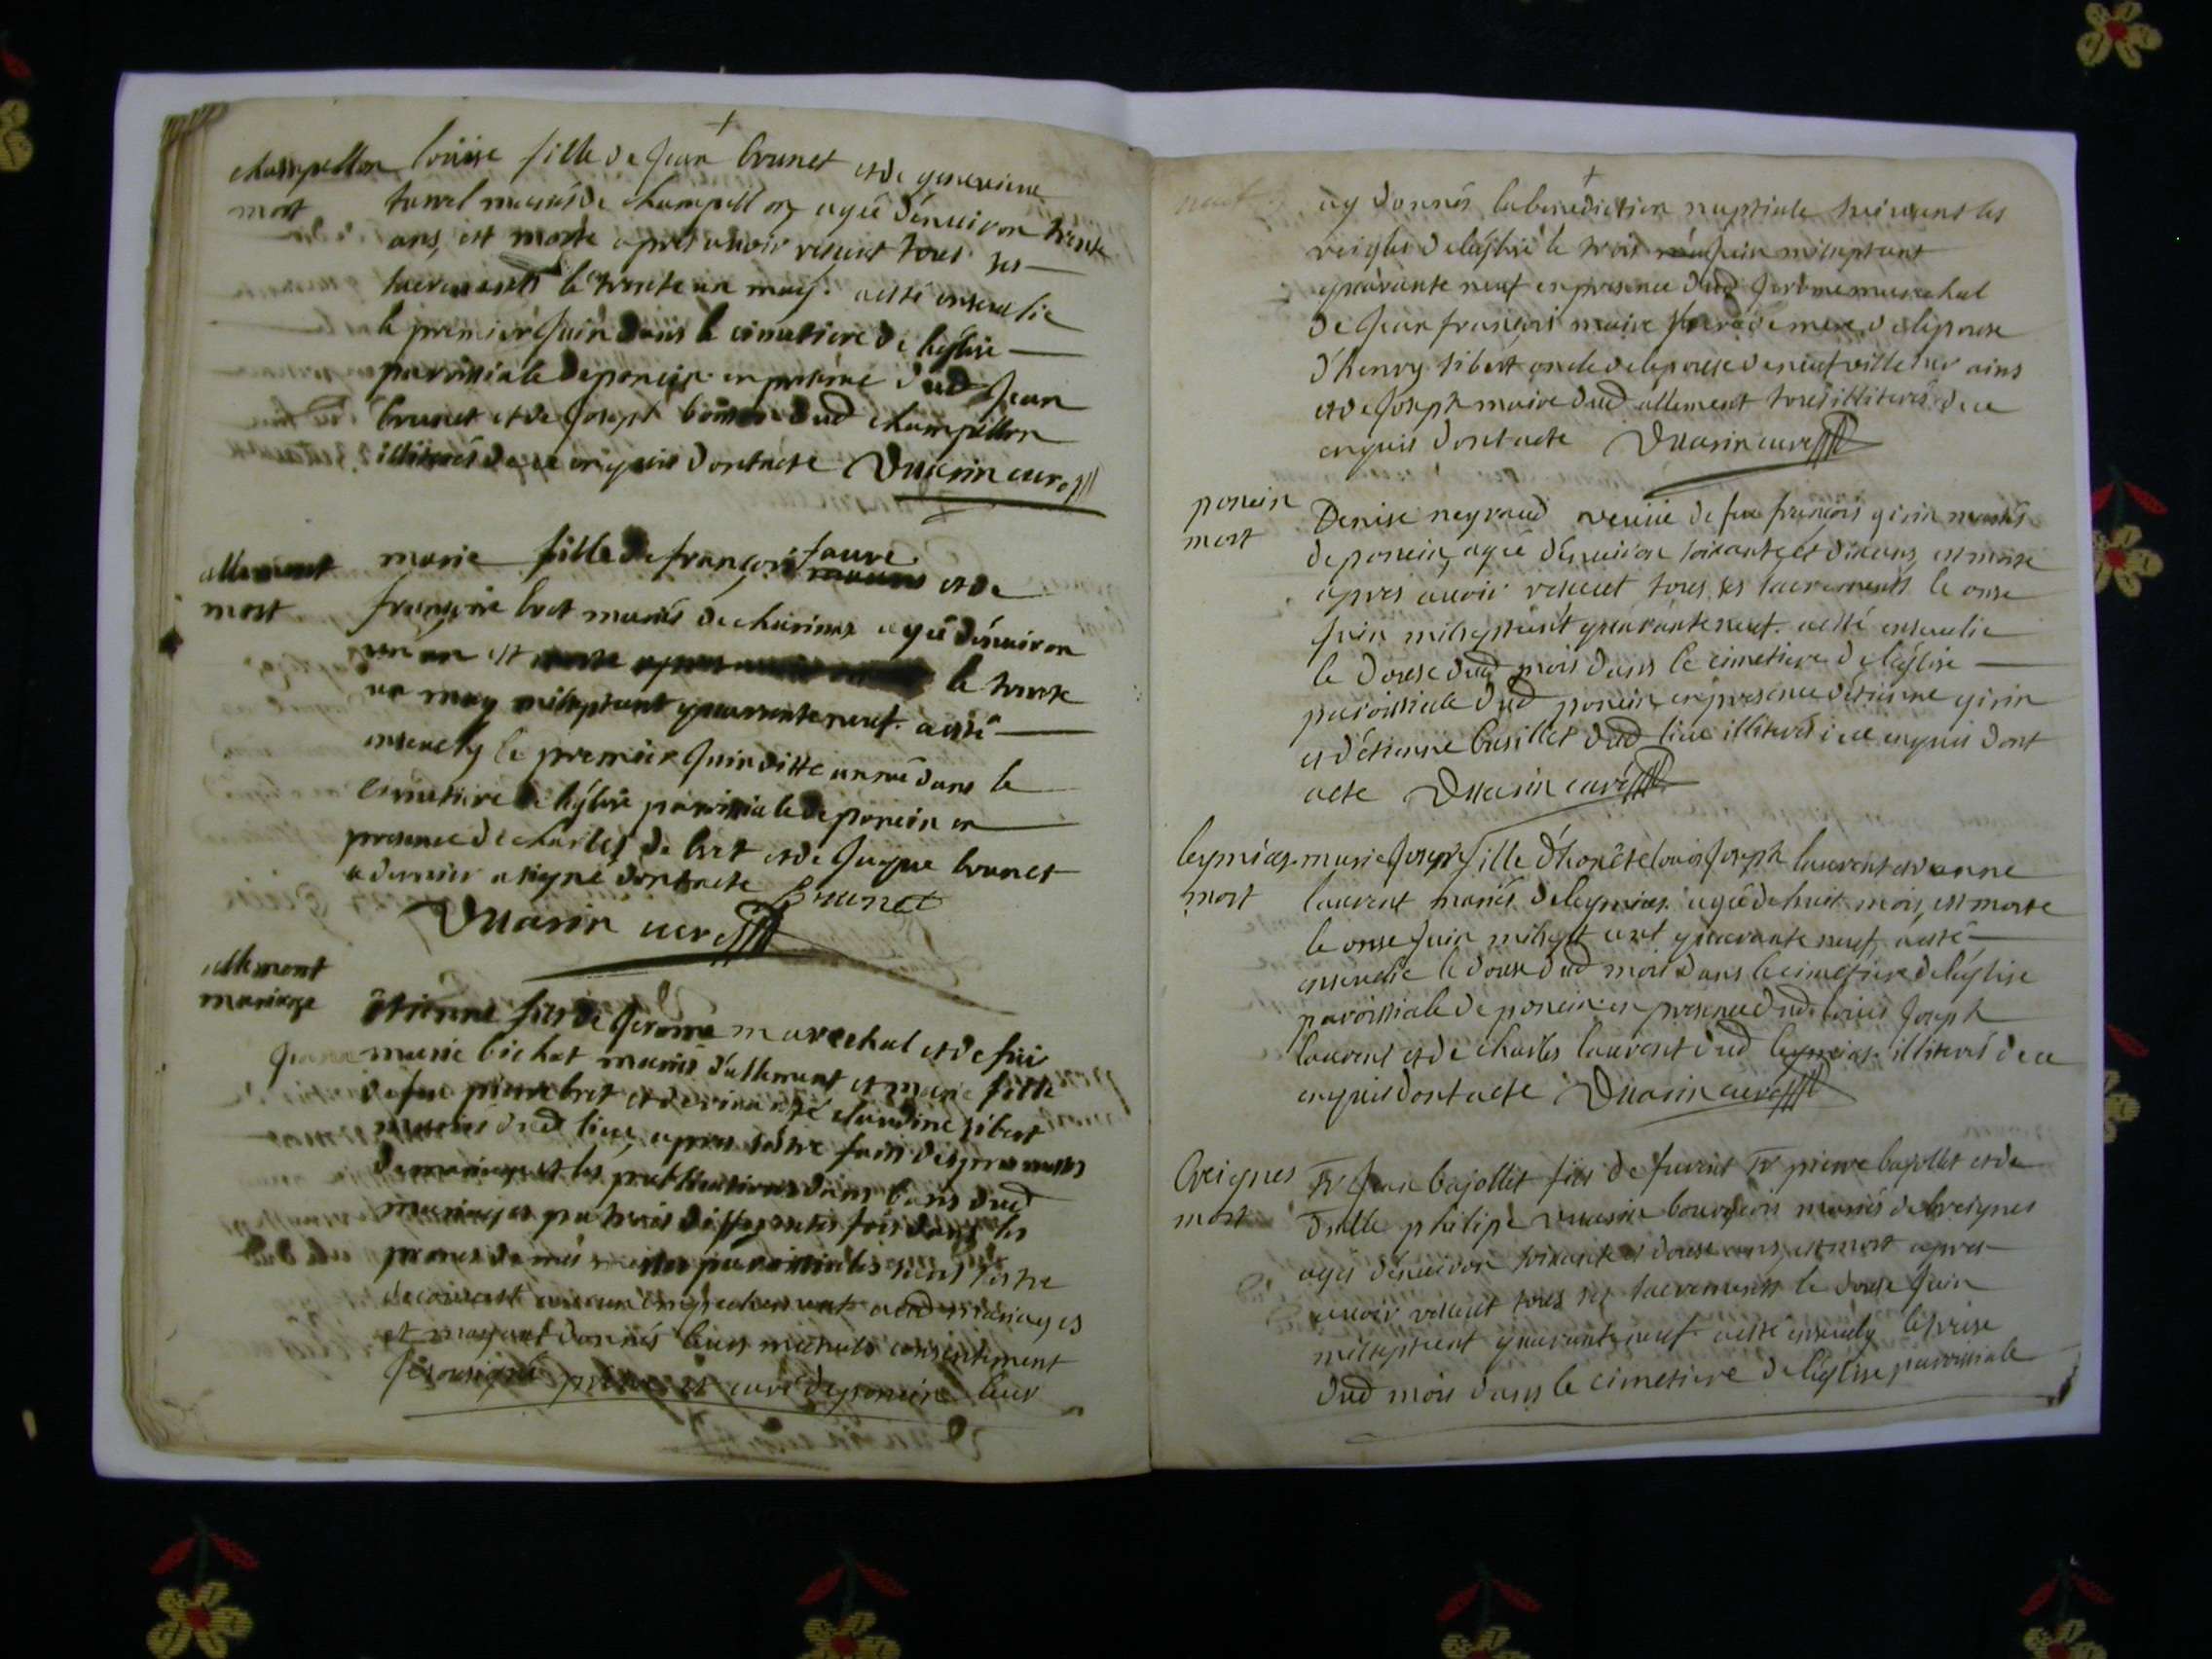 champellon
mort
louise fille de Jean brunet et de genevieve
mariés de champellon agée dénviron trente
ans, est morte apres avoir resceut tous ses
sacrements le trente un may. aesté ensevelie
le premier Juin dans le cimetiere de léglise
parroissiale deponcin en presence dud Jean
brunet et de Joseph dud champellon
illiterés de ce enquis dontacte Duasin curé
allement
mort
marie fille de françois faure et de
françoise bret mariés de agée dénviron
un an est morte le trente
un may milseptcent quarrante neuf. aesté
ensevely le premier Juin ditte année dans le
cimetiere de léglise parroissiale de poncin en
presence de charles de bret et de Jaque brunet
ce dernier a signé dontacte Brunet
Duasin curé
allement
mariage
étienne fils de Jerome marechal et de feüe
marie bichat mariés d'allement et marie fille
de feu pierre bret et de vivante claudine sibert
mariés dud lieu, apres sestre faits des promesses
de mariage et les publications dans bans dud
mariages par trois differentes fois dans les
prones de mes messes parroissiales sans sestre
decouvert aucun empechement aud mariages
et mayant donnés leurs mutuels consentiment
Je soussigné prêtre et curé de poncin leur
ay donnés labenediction nuptiale suivant les
reigles de léglise le trois Juin milseptcent
quarante neuf en presence dud Jerôme marechal
de Jean françois maire de mere de lepouse
d'henry sibert oncle de lepouse de neufville sur ains
et de Joseph maire dud allement tous illiterés de ce
enquis dontacte Duasin curé
poncin
mort
Denise neyraud veuve de feu françois girin mariés
de poncin, agée dénviron soixante et dix ans, est morte
apres avoir resceut tous ses sacrements le onse
Juin milseptcent quarante neuf. aesté ensevelie
le douse dud mois dans le cimetiere de léglise
paroissiale dud poncin, en presence détienne girin
et d'étienne busillet dud lieu illiterés de ce enquis dont
acte Duasin curé
leymias
mort
marie Joseph fille d'honête louis Joseph laurent et danne
laurent mariés de leymias. agée de huit mois, est morte
le onse Juin milsept cent quarante neuf, aesté
ensevelie le douse dud mois dans le cimetiere de léglise
paroissiale de poncin en presence dud louis Joseph
laurent et de charles laurent dud leymias. illiterés de ce
enquis dontacte Duasin curé
breignes
mort
Sr Jean bajollet fils de furent Sr pierre bajollet et de
Dselle philipe bourgeois mariés de breignes
agés dénviron soixante et douse ans, est mort apres
avoir resceut tous ses sacrements le douse Juin
milseptcent quarante neuf. aesté ensevely le treise
dud mois dans le cimetiere de léglise parroissiale